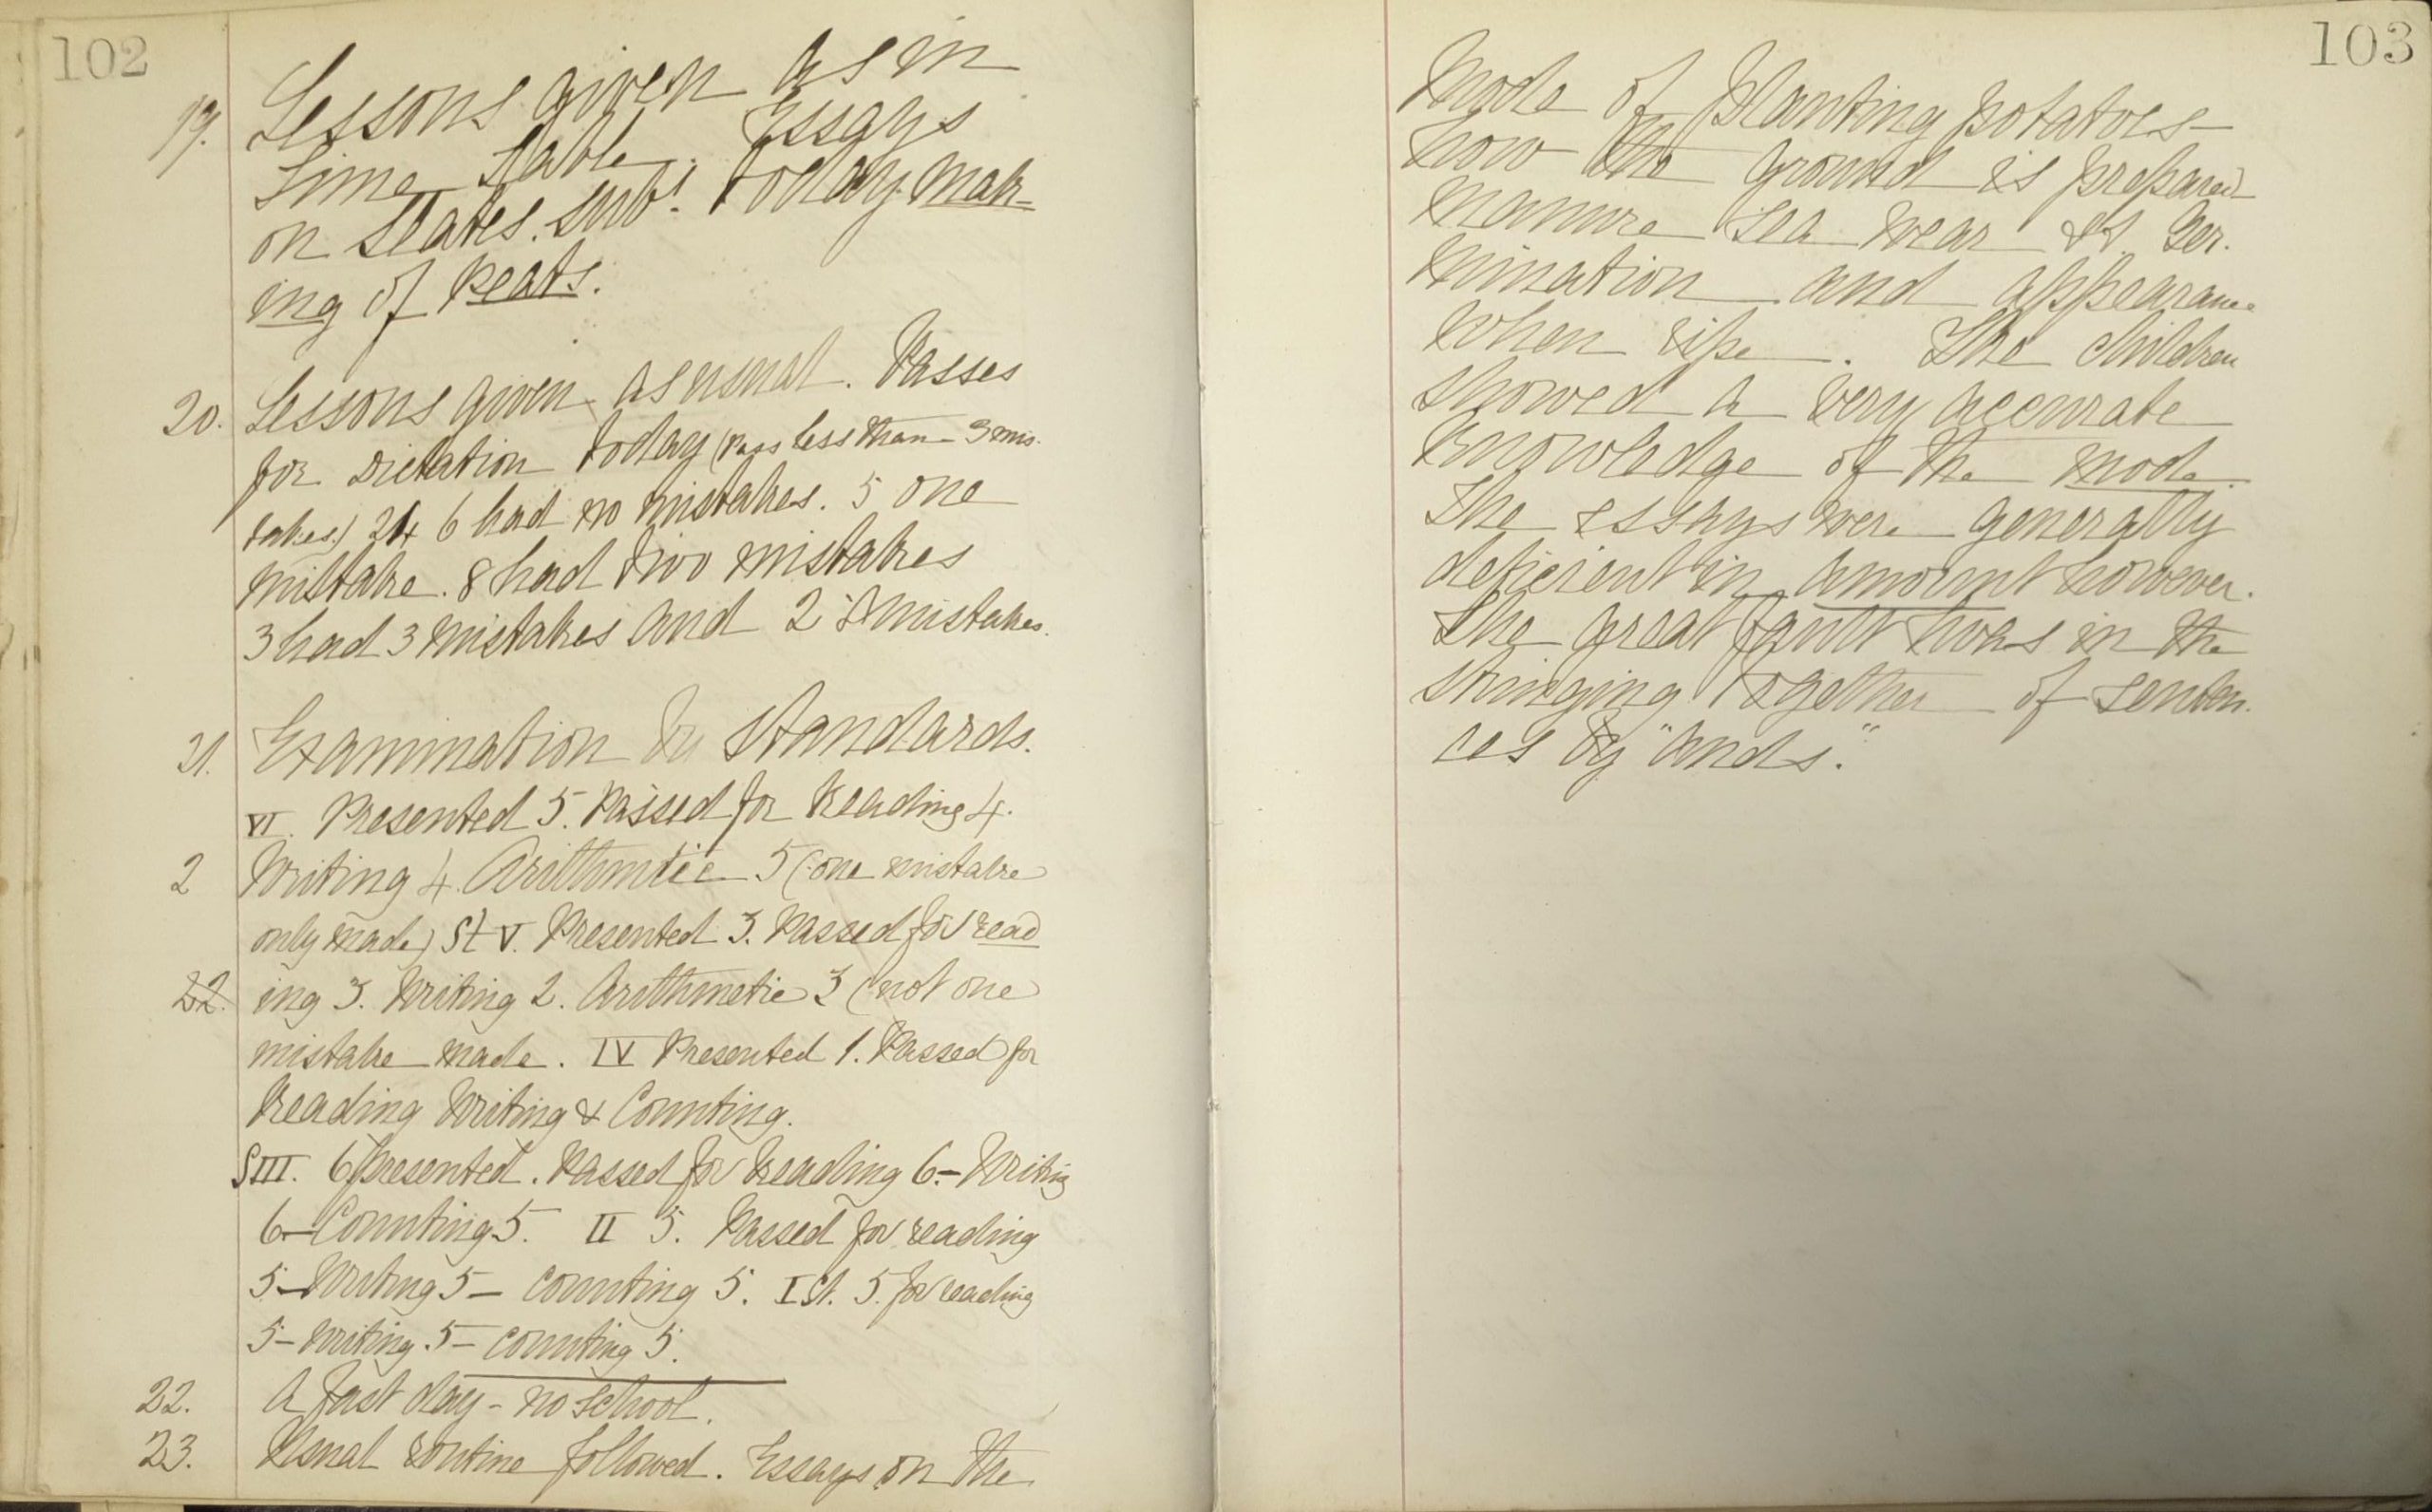 102
19. Lessons given as in
Time Table. Essays
on Slates. Subt. today Mak-
ing of Peats.
20. Lessons given as usual. Passes
for Dictation today (Pass less than 3 mis-
takes) 24 6 had no mistakes. 5 one
mistake. 8 had two mistakes
3 had 3 mistakes and 2 4 mistakes.
21. Examination in Standards.
VI. Presented 5. Passed for Reading 4.
2 Writing 4. Arithmtic 5 (one mistake
only made) St V. Presented 3. Passed for read
22. ing 3. Writing 2. Arithmetic 3 (not one
mistake made. IV Presented 1. Passed for
Reading Writing & Counting.
SIII. 6 Presented. Passed for Reading 6.- Writing
6-Counting 5. II 5. Passed for reading
5-Writing 5- Counting 5. I St. 5. for reading
5-Writing 5- counting 5.
22. A fast day - no school.
23. Usual routine followed. Essays on the
103
Mode of Planting Potatoes-
how the ground is prepared-
manure sea wear &c. Ger-
mination and appearance
when ripe. The children
showed a very accurate
knowledge of the mode.
The essays were generally
deficient in amount however.
The great fault was in the
stringing together of senten-
ces by "ands."